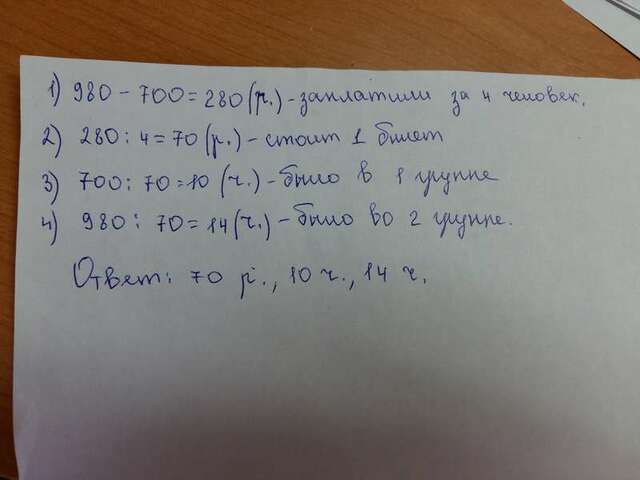 1) 980 - 700 = 280 (р.) - заплатили за 4 человек.
2) 280 : 4 = 70 (р.) - стоит 1 билет
3) 700 : 70 = 10 (ч.) - было в 1 группе
4) 980 : 70 = 14 (ч.) - было во 2 группе.
Ответ: 70 р., 10 ч., 14 ч.